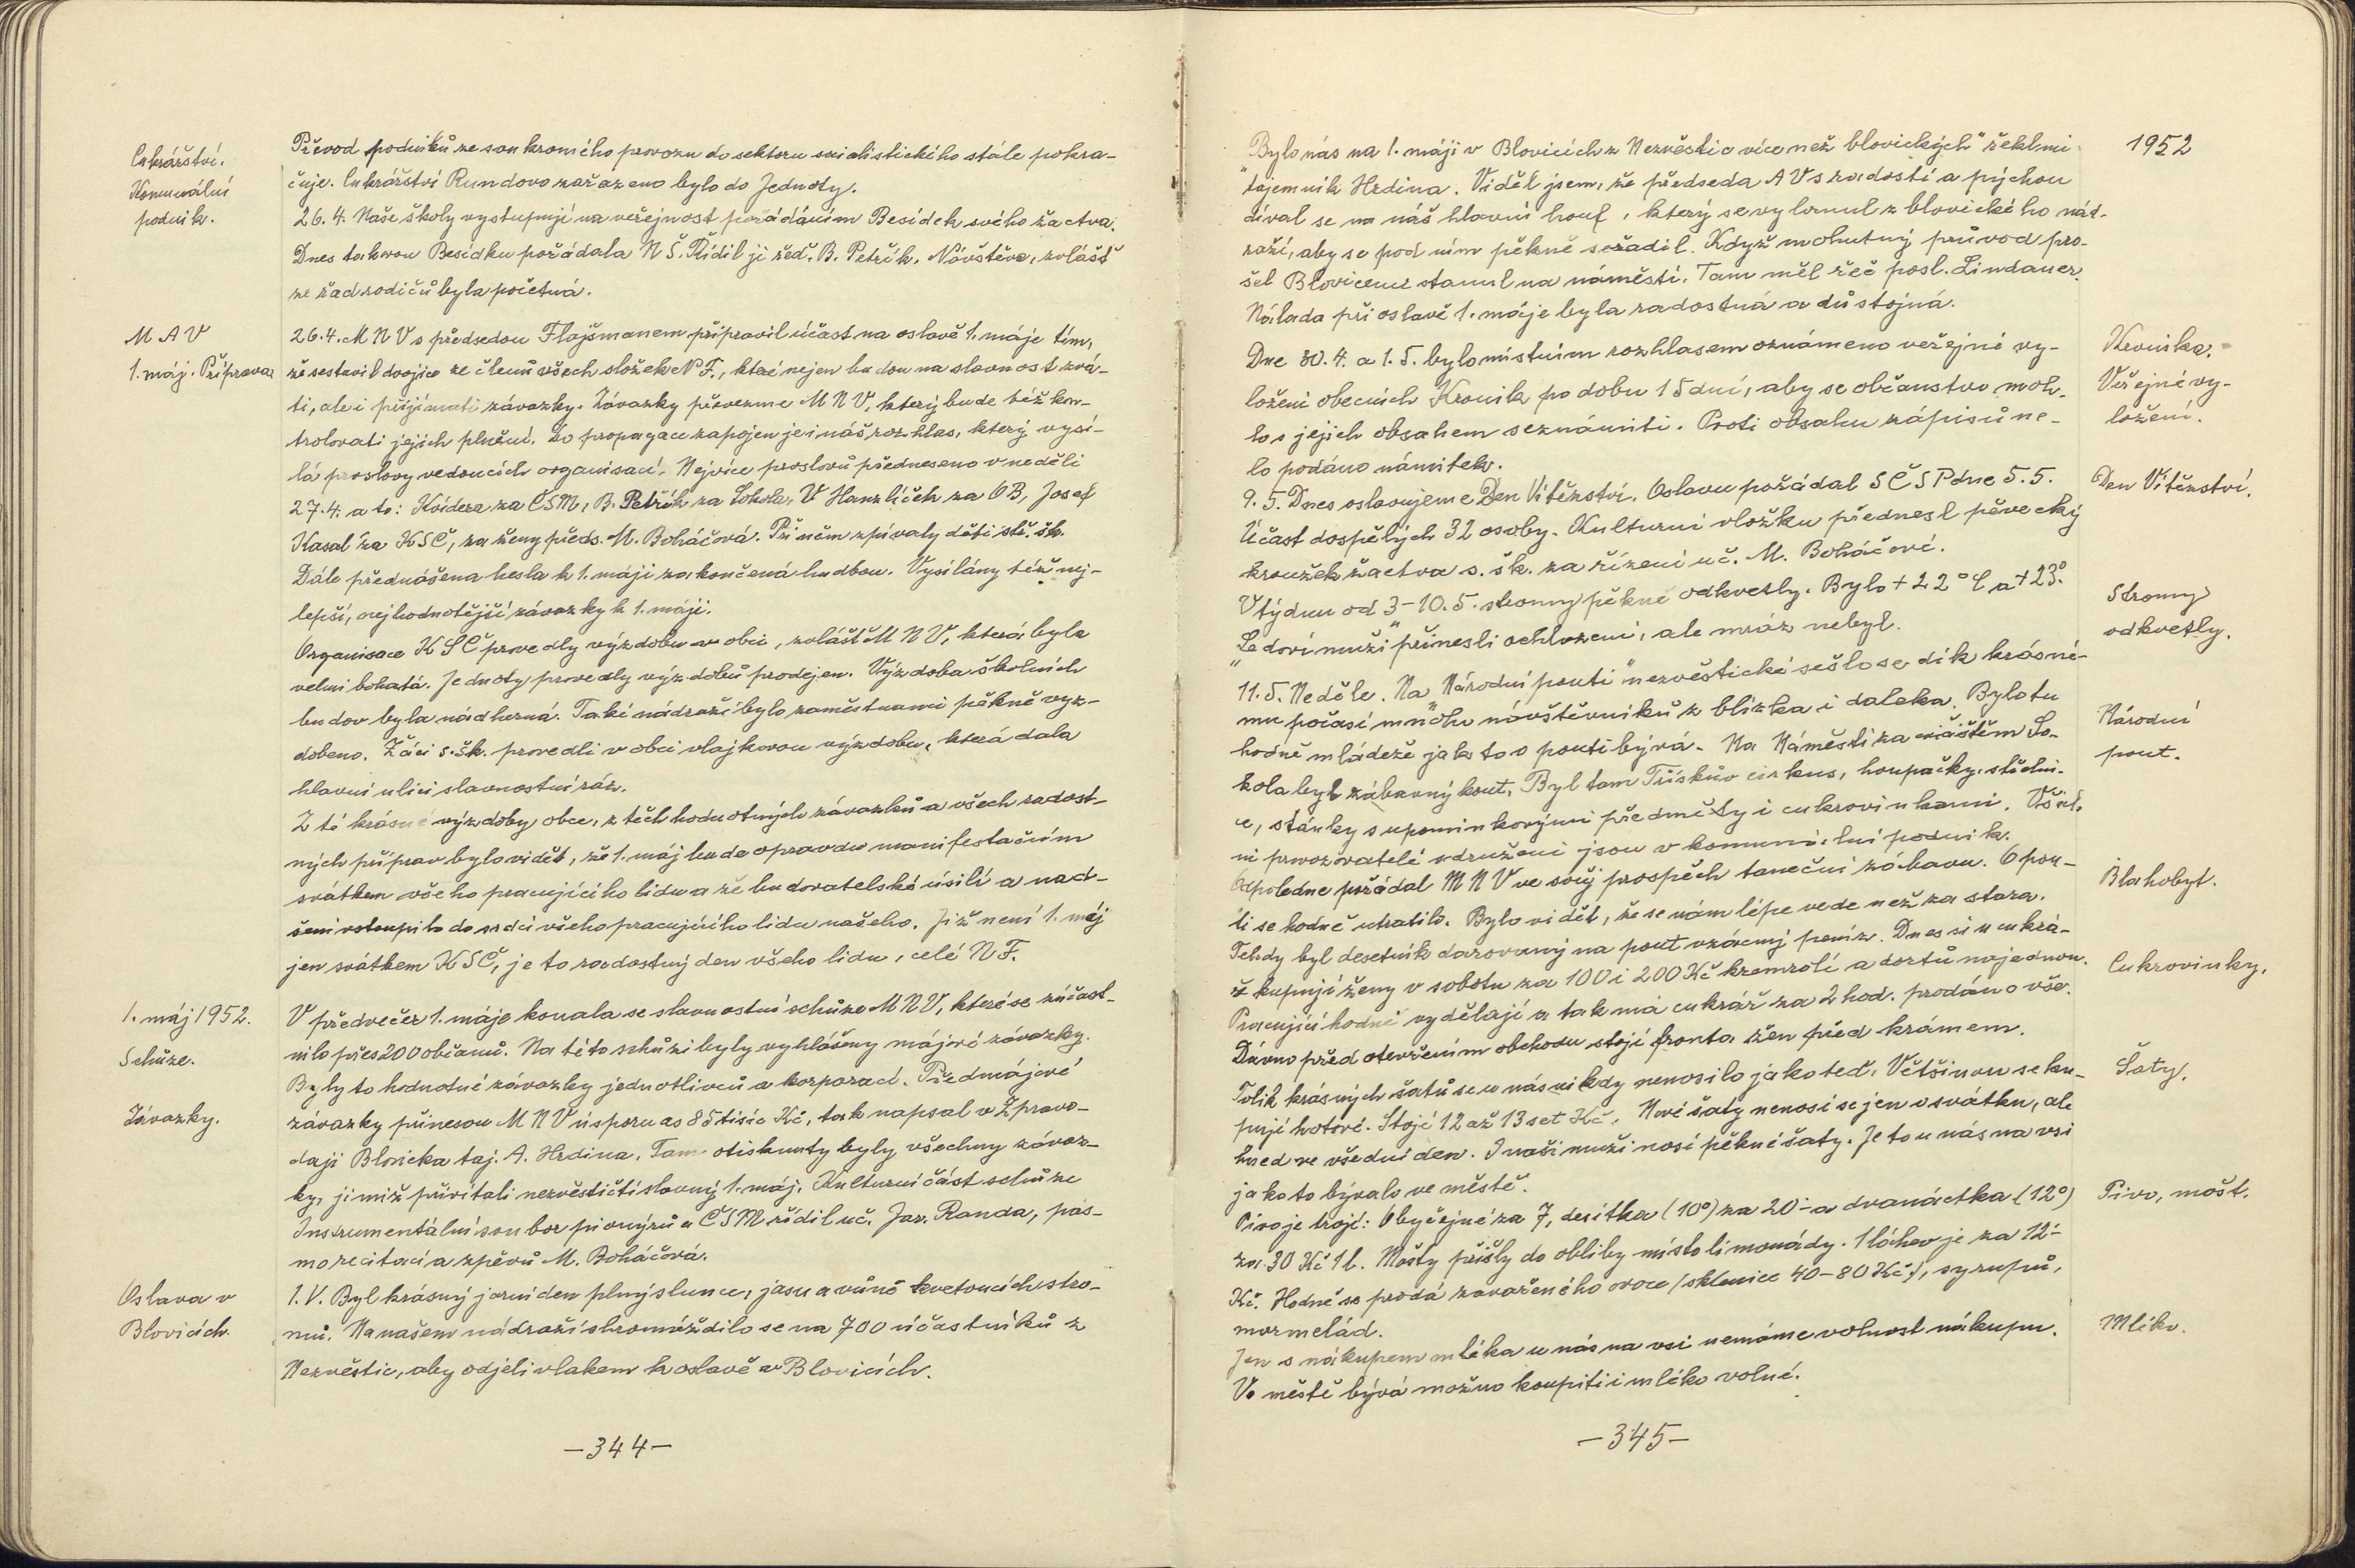 Cukrářství.
Komunální
podnik.
Převod podniků ze soukromého provozu do sektoru socialistického stále pokra-
čuje. Cukrářství Rundovo zařazeno bylo do Jednoty.
26.4. Naše školy vystupují na veřejnost pořádáním Besídek svého žactva.
Dnes takovou Besídku pořádala N Š. Řídil ji řed. B. Petřík. Návštěva, zvlášť
ze řad rodičů byla početná.
M A V
1. máj. Příprava
26.4. M N V s předsedou Flajšmanem připravil účast na oslavě 1. máje tím,
že sestavil dvojice ze členů všech složek N F., které nejen budou na slavnost zvá-
ti, ale i přijímati závazky. Závazky převezme M N V, který bude též kon-
trolovati jejich plnění. Do propagace zapojen je i náš rozhlas, který vysí-
lá proslovy vedoucích organisací. Nejvíce proslovů předneseno v neděli
27.4. a to: Kvidera za ČSM, B. Petřík za Sokola, V Hanzlíček za OB, Josef
Kasal za KSČ, za ženy předs. M. Boháčová. Při něm zpívaly děti stř. šk.
Dále přednášena hesla k 1. máji zakončená hudbou. Vysílány též nej-
lepší, nejhodnotější závazky k 1. máji.
Organisace KSČ provedly výzdobu v obci, zvláště M N V, která byla
velmi bohatá. Jednoty provedly výzdobu prodejen. Výzdoba školních
budov byla nádherná. Také nádraží bylo zaměstnanci pěkně vyz-
dobeno. Žáci s. šk. provedli v obci vlajkovou výzdobu, která dala
hlavní ulici slavnostní ráz.
Z té krásné výzdoby obce, z těch hodnotných závazků a všech radost-
ných příprav bylo vidět, že 1. máj bude opravdu manifestačním
svátkem všeho pracujícího lidu a že budovatelské úsilí a nad-
šení vstoupilo do srdcí všeho pracujícího lidu našeho. Již není 1. máj
jen svátkem KSČ, je to radostný den všeho lidu, celé N F.
1. máj 1952.
Schůze.
Závazky.
V předvečer 1. máje konala se slavnostní schůze M N V, které se zúčast-
nilo přes 200 občanů. Na této schůzi byly vyhlášeny májové závazky.
Byly to hodnotné závazky jednotlivců a korporací. Předmájové
závazky přinesou M N V úsporu as 85 tisíc Kč, tak napsal v Zpravo-
daji Blovicka taj. A. Hrdina. Tam otisknuty byly všechny závaz-
ky, jimiž přivítali nezvěstičtí slavný 1. máj. Kulturní část schůze
Instrumentální soubor pionýrů a ČSM řídil uč. Jar. Randa, pás-
mo recitací a zpěvů M. Boháčová.
Oslava v
Blovicích.
1. V. Byl krásný jarní den plný slunce, jasu a vůně kvetoucích stro-
mů. Na našem nádraží shromáždilo se na 700 účastníků z
Nezvěstic, aby odjeli vlakem k oslavě v Blovicích.
-344-
1952
"Bylo nás na 1. máji v Blovicích z Nezvěstic více než blovických" řekl mi
tajemník Hrdina. Viděl jsem, že předseda A V s radostí a pýchou
díval se na náš hlavní houf, který se vylonul z blovického nád-
raží, aby se pod ním pěkně seřadil. Když mohutný průvod pro-
šel Blovicemi stanul na náměstí. Tam měl řeč posl. Lindauer.
Nálada při oslavě 1. máje byla radostná a důstojná.
Kronika.
Veřejné vy-
ložení.
Dne 30.4. a 1.5. bylo místním rozhlasem oznámeno veřejné vy-
ložení obecních Kronik po dobu 15 dní, aby se občanstvo moh-
lo s jejich obsahem seznámiti. Proti obsahu zápisů ne-
lo podáno námitek.
Den Vítězství.
9.5. Dnes oslavujeme Den Vítězství. Oslavu pořádal SČSP dne 5.5.
Účast dospělých 32 osoby. Kulturní vložku přednesl pěvecký
kroužek žactva s. šk. za řízení uč. M. Boháčové.
Stromy
odkvetly.
V týdnu od 3-10.5. stromy pěkně odkvetly. Bylo +22° C a +23°.
"Ledoví muži" přinesli ochlazení, ale mráz nebyl.
Národní
pout.
11.5. Neděle. Na "Národní pouti" nezvěstické sešlo se dík krásné-
mu počasí mnoho návštěvníků z blízka i daleka. Bylo tu
hodně mládeže jak to o pouti bývá. Na Náměstí za cvičištěm So-
kola byl zábavný kout. Byl tam Třískův cirkus, houpačky, střelni-
ce, stánky s upomínkovými předměty i cukrovinkami. Všich-
ni provozovatelé sdruženi jsou v komunální podnik.
Odpoledne pořádal M N V ve svůj prospěch taneční zábavu. O pou-
Blahobyt.
ti se hodně utratilo. Bylo vidět, že se nám lépe vede než za stara.
Tehdy byl desetník darovaný na pout vzácný peníz. Dnes si u cukrá-
Cukrovinky.
ře kupují ženy v sobotu za 100 i 200 Kč kremrolí a dortů najednou.
Pracující hodně vydělají a tak má cukrář za 2 hod. prodáno vše.
Dávno před otevřením obchodu stojí fronta žen před krámem.
Šaty.
Tolik krásných šatů se u nás nikdy nenosilo jako teď. Většinou se ku-
pují hotové. Stojí 12 až 13 set Kč. Nové šaty nenosí se jen o svátku, ale
hned ve všední den. I naši muži nosí pěkné šaty. Je to u nás na vsi
jak to bývalo ve městě.
Pivo, mošt.
Pivo je trojí: Obyčejné za 7, desítka (10°) za 20- a dvanáctka (12°)
za 30 Kč 1 l. Mošty přišly do obliby místo limonády. 1 láhev je za 12-
Kč. Hodně se prodá zavařeného ovoce /sklenice 40-80 Kč/, syrupů,
marmelád.
Mléko.
Jen s nákupem mléka u nás na vsi nemáme volnost nákupu.
Ve městě bývá možno koupiti i mléko volně.
-345-